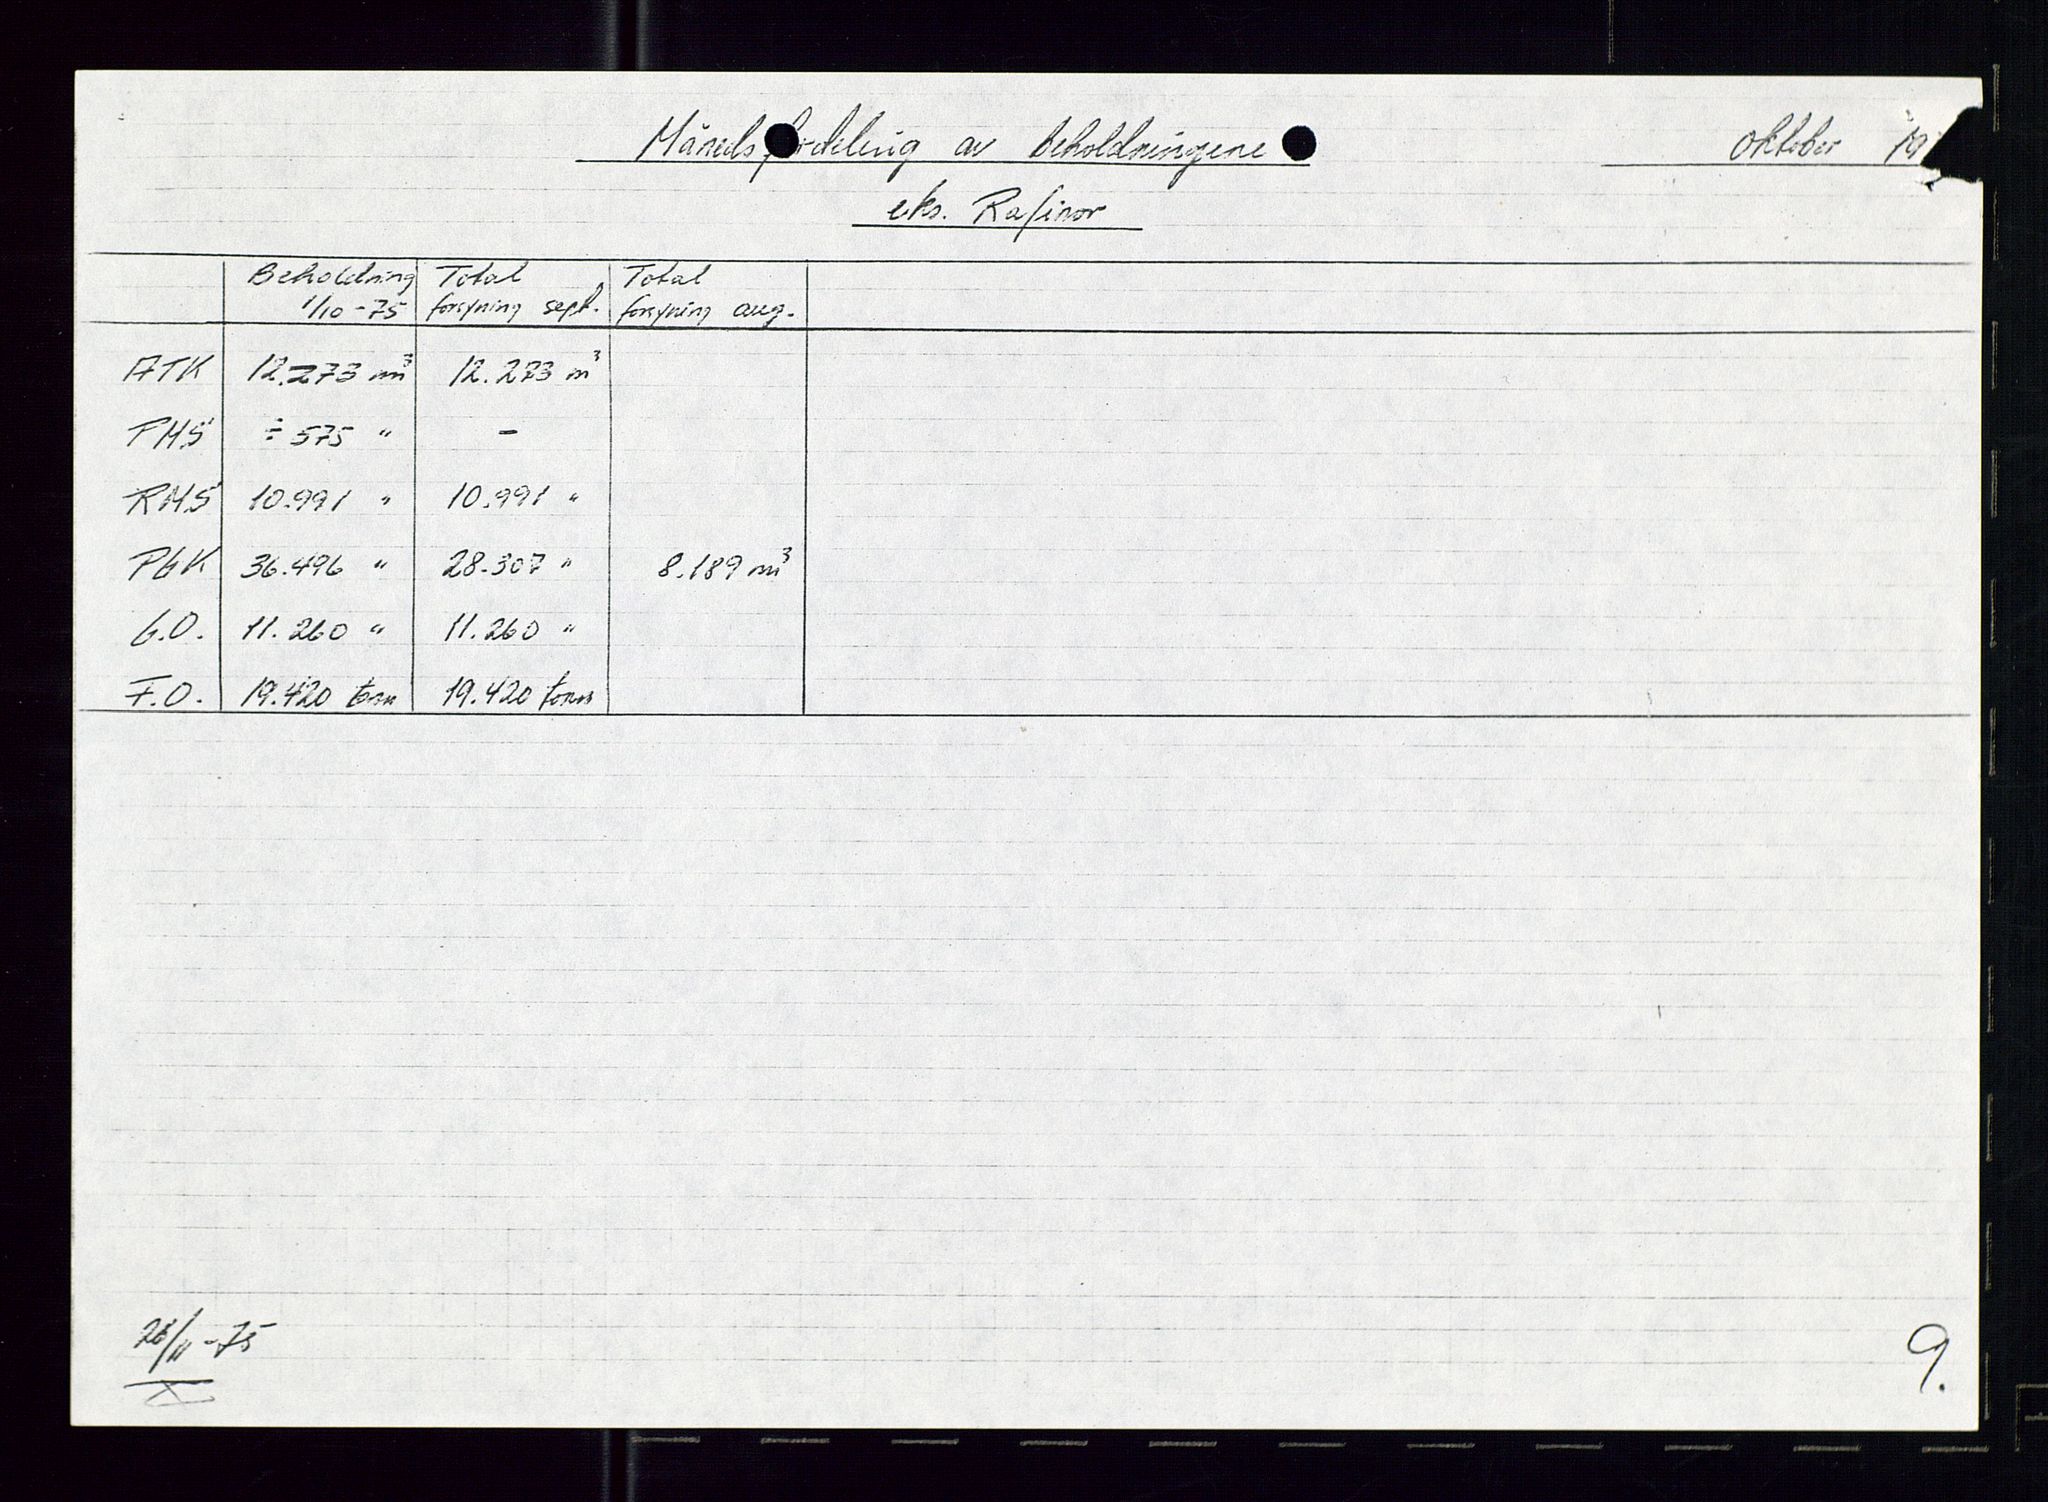 Månedsfordeling av beholdningene
oktober 19
eks. Rafinor
Beholdning 1/10 -75 | Total forsyning sept. | Total forsyning aug.
ATK 12.273 m³ 12.273 m³
PMS ÷ 575 " -
RMS 10.991 " 10.991 "
PGK 36.496 " 28.307 " 8.189 m³
G.O. 11.260 " 11.260 "
F.O. 19.420 tonn 19.420 tonn
/11 -75
9.